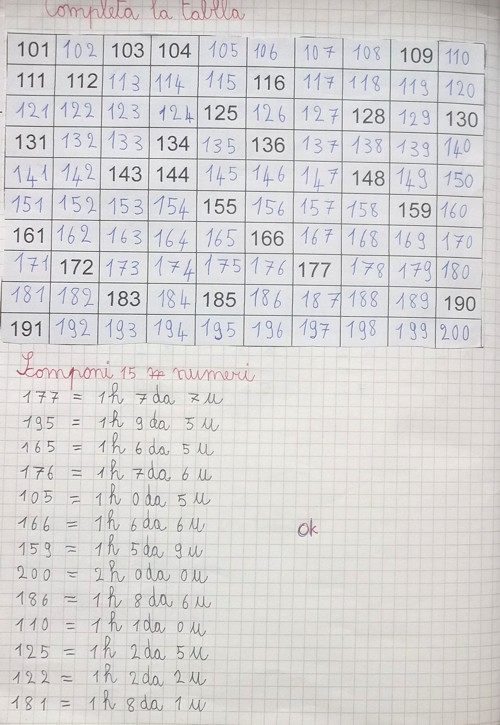 Completa la tablla
101 102 103 104 105 106 107 108 109 110
111 112 113 114 115 116 117 118 119 120
121 122 123 124 125 126 127 128 129 130
131 132 133 134 135 136 137 138 139 140
141 142 143 144 145 146 147 148 149 150
151 152 153 154 155 156 157 158 159 160
161 162 163 164 165 166 167 168 169 170
171 172 173 174 175 176 177 178 179 180
181 182 183 184 185 186 187 188 189 190
191 192 193 194 195 196 197 198 199 200
Scomponi 15 numeri
177 = 1h 7da 7u
195 = 1h 9da 5u
165 = 1h 6da 5u
176 = 1h 7da 6u
105 = 1h 0da 5u
166 = 1h 6da 6u
ok
159 = 1h 5da 9u
200 = 2h 0da 0u
186 = 1h 8da 6u
110 = 1h 1da 0u
125 = 1h 2da 5u
122 = 1h 2da 2u
181 = 1h 8da 1u